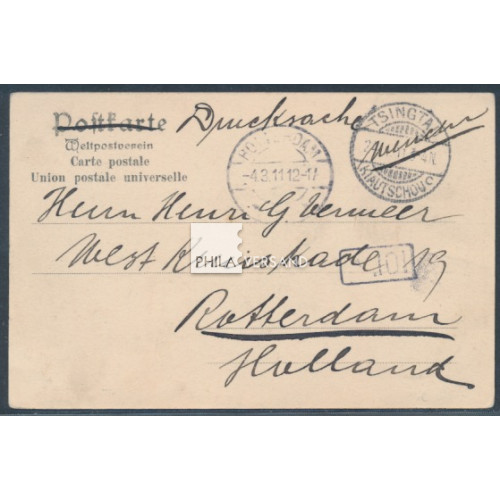 Postkarte
Drucksache
Weltpostverein
Carte postale
Union postale universelle
TSINGTAU
KIAUTSCHOU
ROTTERDAM
-4.3.11 12-1V
Herrn Henri G Vermeer
West Kade 19
PHILA VERSAND
101
Rotterdam
Holland